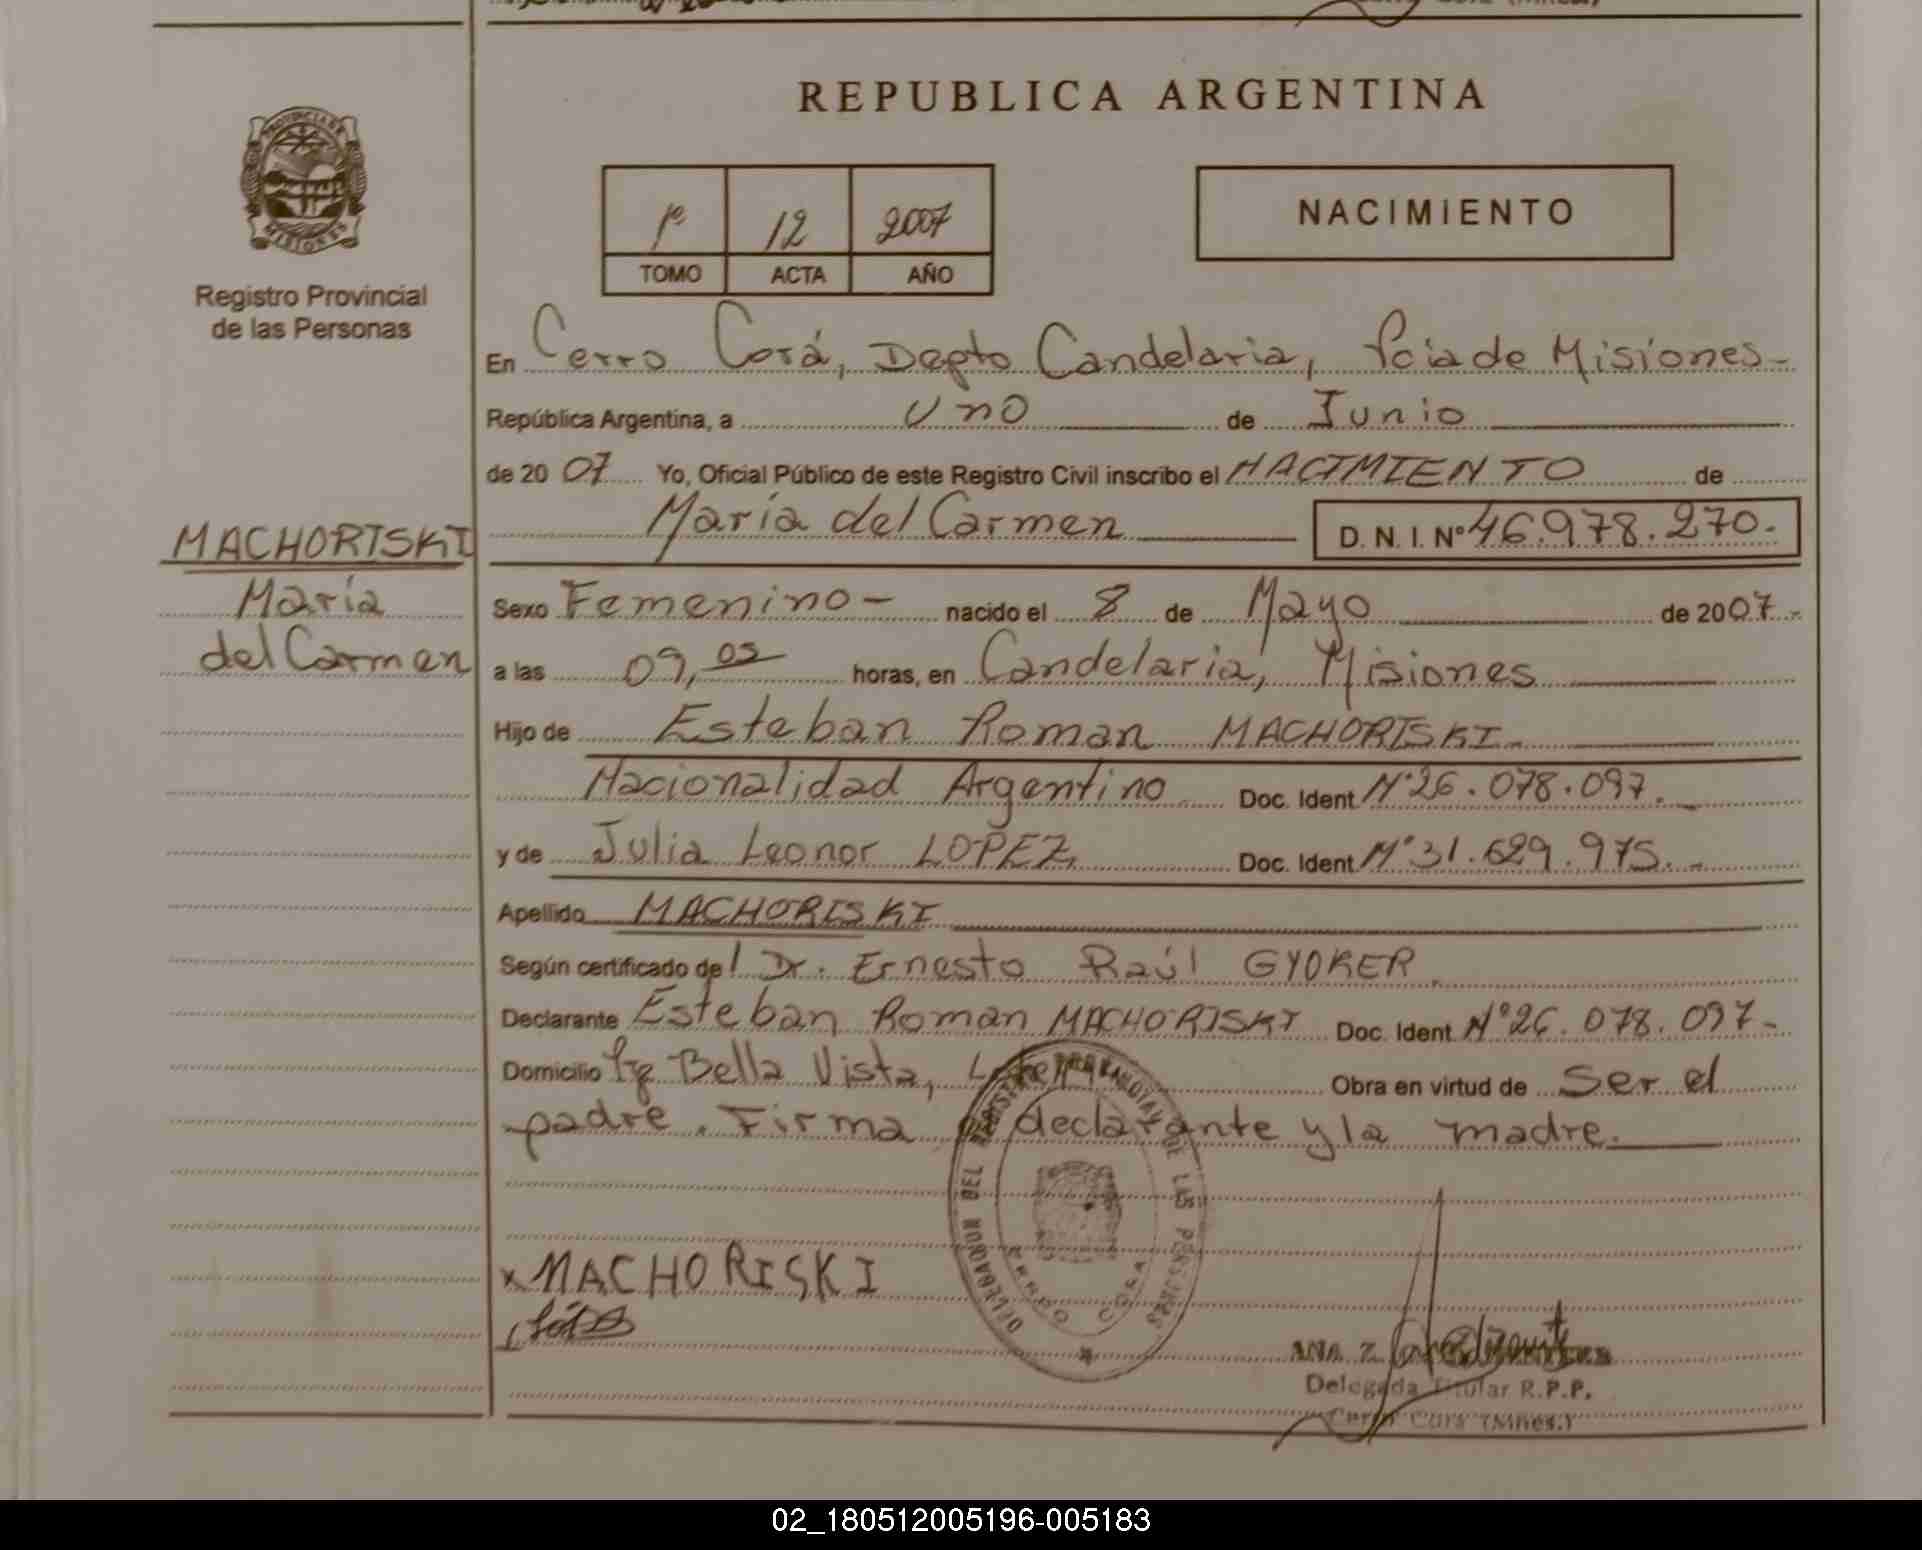 REPUBLICA ARGENTINA
PROVINCIA DE
MISIONES
Registro Provincial
de las Personas
1º 12 2007
TOMO ACTA AÑO
NACIMIENTO
En Cerro Corá, Depto Candelaria, Pcia de Misiones-
República Argentina, a Uno de Junio
de 2007 Yo, Oficial Público de este Registro Civil inscribo el NACIMIENTO de
María del Carmen D. N. I. Nº 46.978.270.-
MACHORISKI
María
del Carmen
Sexo Femenino- nacido el 8 de Mayo de 2007.-
a las 09,05 horas, en Candelaria, Misiones
Hijo de Esteban Roman MACHORISKI.-
Nacionalidad Argentino Doc. Ident Nº26.078.097.-
y de Julia Leonor LOPEZ Doc. Ident Nº31.629.975.-
Apellido MACHORISKI
Según certificado del Dr. Ernesto Raúl GYOKER.
Declarante Esteban Roman MACHORISKI Doc. Ident Nº26.078.097.-
Domicilio Pje Bella Vista, Obra en virtud de Ser el
padre. Firma declarante y la madre.
DELEGACION DEL REGISTRO PROVINCIAL DE LAS PERSONAS
CERRO CORA
x MACHORISKI
ANA Z.
Delegada Titular R.P.P.
Cerro Corá (Mnes.)
02_180512005196-005183